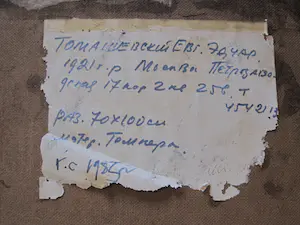 ТОМАШЕВСКИЙ ЕВГ. ЭДУАР.
1921 г.р Москва Петрозаво
17 кор 2 кв 258. Т
45421
РАЗ. 70х100см
матер. Темпера.
Г.С 198